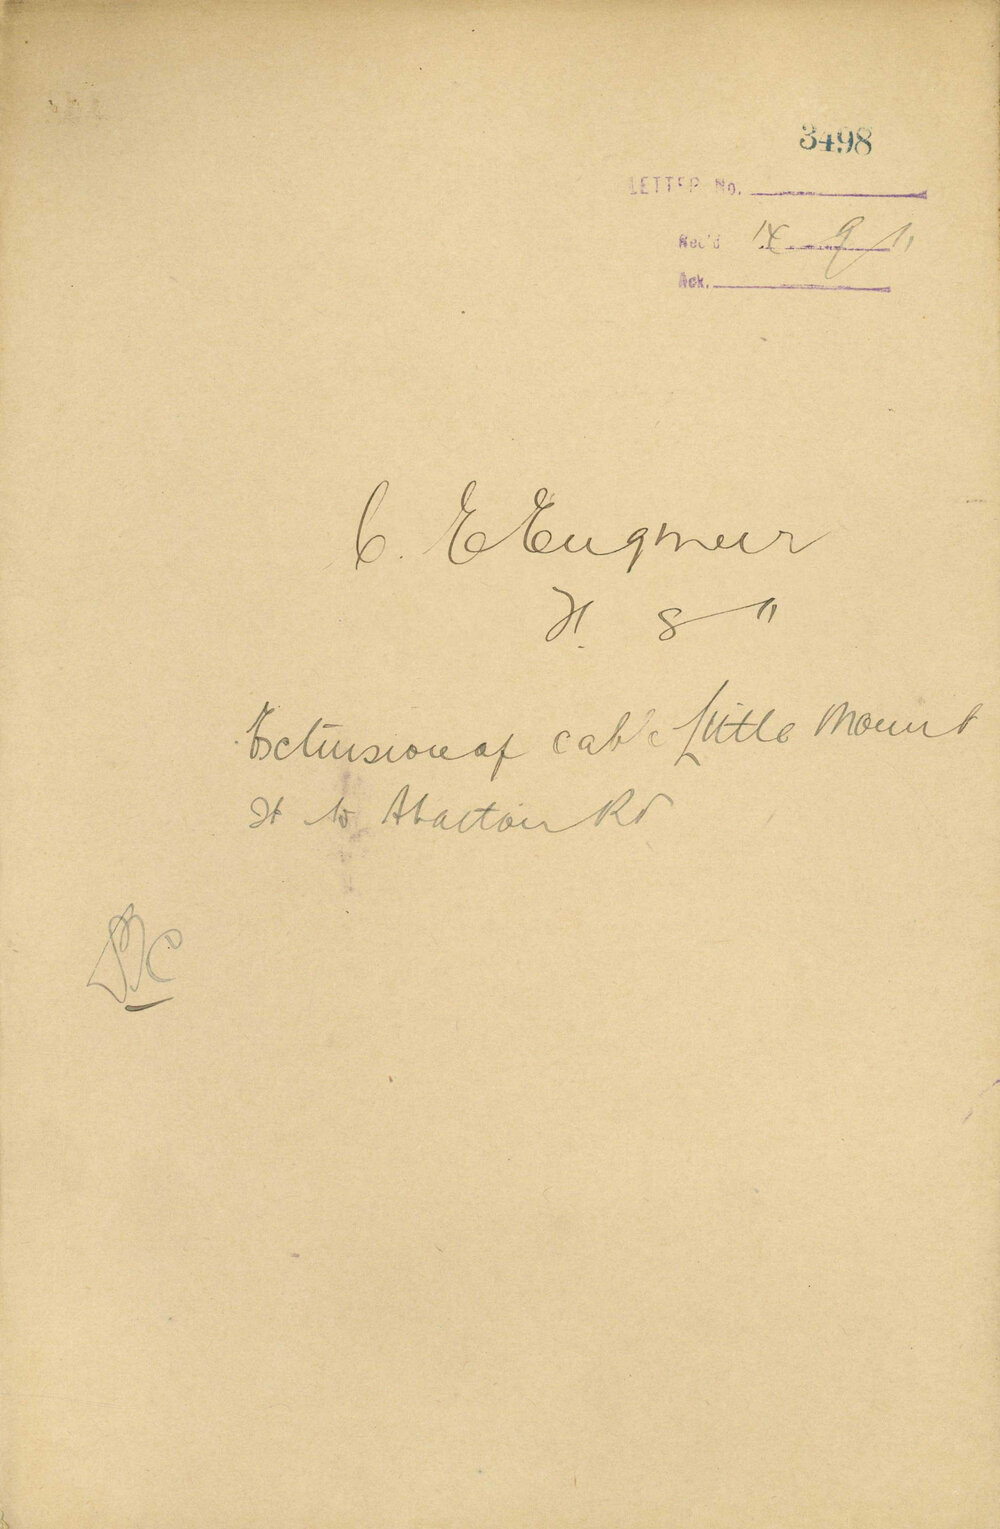 3498
LETTER No.
Rec'd 9/11
Ack.
C. E Engineer
8/11
Extension of cable Little Mount
St to Abattoir Rd